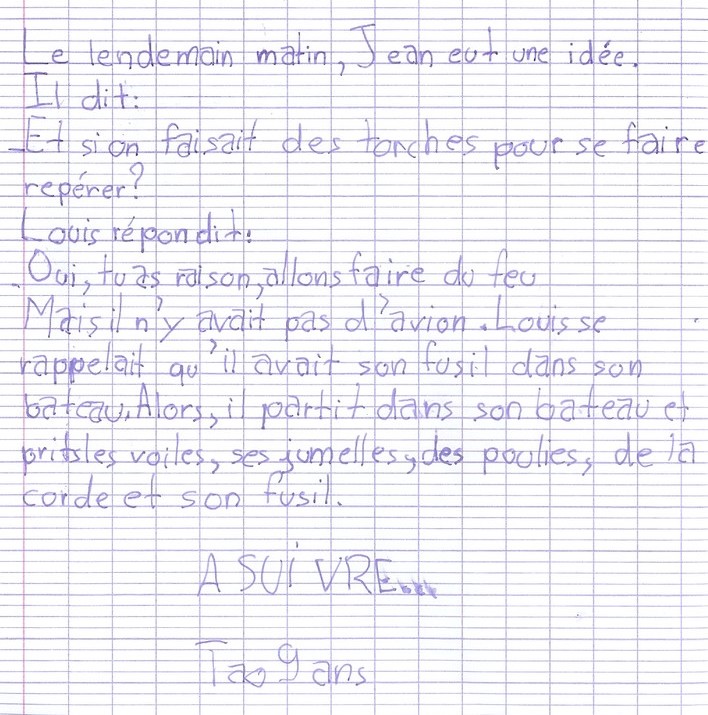 Le lendemain matin, Jean eut une idée.
Il dit:
-Et si on faisait des torches pour se faire
repérer?
Louis répondit:
-Oui, tu as raison, allons faire du feu
Mais il n'y avait pas d'avion. Louis se
rappelait qu'il avait son fusil dans son
bateau. Alors, il partit dans son bateau et
prit les voiles, ses jumelles, des poulies, de la
corde et son fusil.
A SUiVRE....
Tao 9 ans